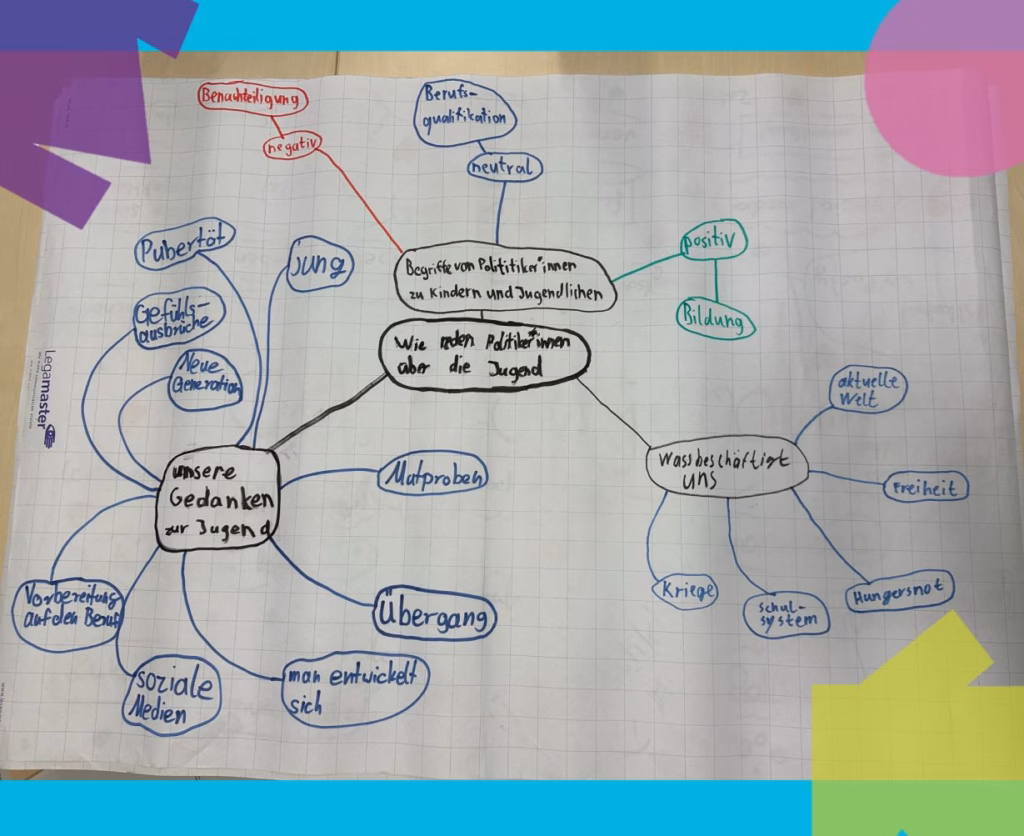 Benachteiligung
negativ
Berufs-
qualifikation
neutral
Begriffe von Polititiker*innen
zu Kindern und Jugendlichen
positiv
Bildung
Wie reden Politiker*innen
aber die Jugend
Pubertöt
jung
Gefühls-
ausbrüche
Neue
Generation
Legamaster
unsere
Gedanken
zur Jugend
Mutproben
Übergang
man entwickelt
sich
soziale
Medien
Vorbereitung
auf den Beruf
Wass beschäftigt
uns
aktuelle
Welt
Freiheit
Hungersnot
Schul-
system
Kriege